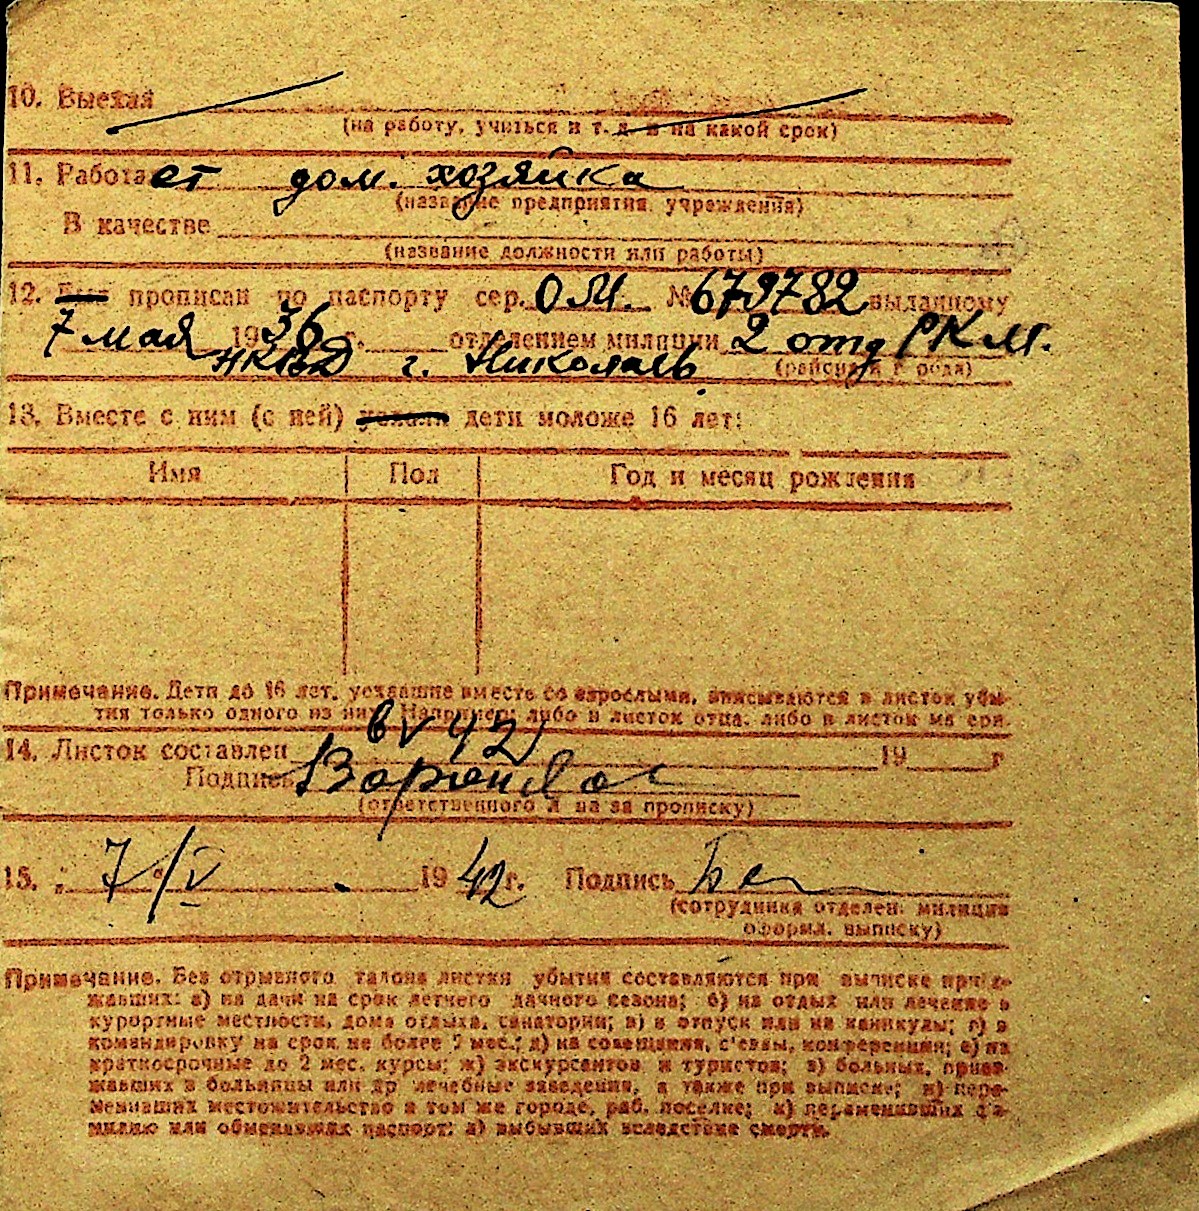 10. Выехал
(на работу, учиться и т. д. и на какой срок)
11. Работает дом. хозяйка
(название предприятия, учреждения)
В качестве
(название должности или работы)
12. Был прописан по паспорту сер. ОМ. № 679782 выданному
7 мая 1936 г. отделением милиции 2 отд РКМ.
НКВД г. Николаев
(района и города)
13. Вместе с ним (с ней) уехали дети моложе 16 лет:
Имя Пол Год и месяц рождения
Примечание. Дети до 16 лет, уехавшие вместе со взрослыми, вписываются в листок убы-
тия только одного из них. Например: либо в листок отца, либо в листок матери.
14. Листок составлен 6 V 42 19 г
Подпись
(ответственного лица за прописку)
15. „7/V 1942 г. Подпись
(сотрудника отделен. милиции
оформ. выписку)
Примечание. Без отрывного талона листки убытия составляются при выписке приез-
жавших: а) на дачи на срок летнего дачного сезона; б) на отдых или лечение в
курортные местности, дома отдыха, санатории; в) в отпуск или на каникулы; г) в
командировку на срок не более 2 мес.; д) на совещания, с'езды, конференции; е) на
краткосрочные до 2 мес. курсы; ж) экскурсантов и туристов; з) больных, приез-
жавших в больницы или др лечебные заведения, а также при выписке; и) пере-
менивших местожительство в том же городе, раб. поселке; к) переменивших фа-
милию или обменявших паспорт; л) выбывших вследствие смерти.